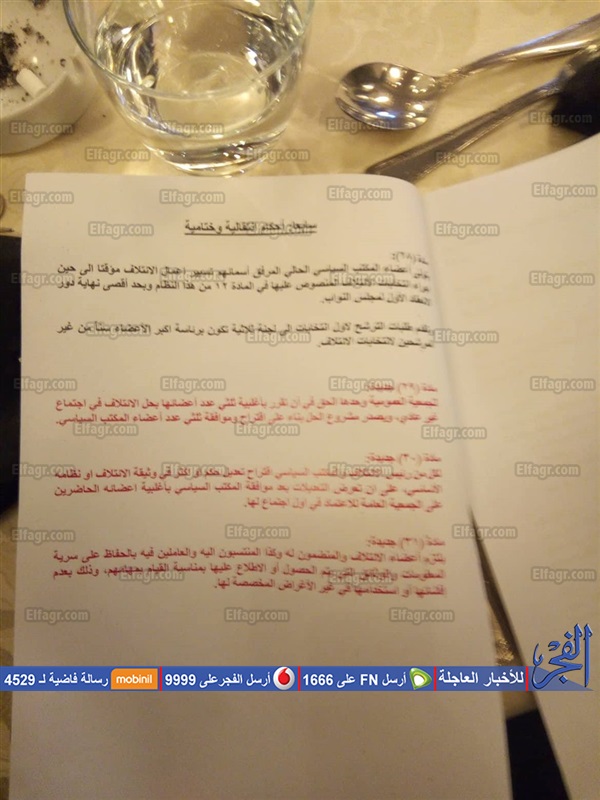 سابعا: أحكام إنتقالية وختامية
مادة (٢٨):
يتولى أعضاء المكتب السياسي الحالي المرفق أسمائهم تسيير أعمال الائتلاف مؤقتا الى حين
إجراء انتخابات الائتلاف المنصوص عليها في المادة ١٢ من هذا النظام وبحد أقصى نهاية دور
الانعقاد الأول لمجلس النواب.
تقدم طلبات الترشح لأول انتخابات إلى لجنة ثلاثية تكون برئاسة اكبر الأعضاء سناً من غير
المرشحين لانتخابات الائتلاف.
مادة (٢٩) جديدة:
للجمعية العمومية وحدها الحق في أن تقرر بأغلبية ثلثي عدد اعضائها بحل الائتلاف في اجتماع
غير عادي، ويصدر مشروع الحل بناء على اقتراح وموافقة ثلثي عدد أعضاء المكتب السياسي.
مادة (٣٠) جديدة:
لكل من رئيس الائتلاف والمكتب السياسي اقتراح تعديل حكم او أكثر في وثيقة الائتلاف او نظامه
الأساسي، على ان تعرض التعديلات بعد موافقة المكتب السياسي بأغلبية اعضائه الحاضرين
على الجمعية العامة للاعتماد في اول اجتماع لها.
مادة (٣١) جديدة:
يلتزم أعضاء الائتلاف والمنضمون له وكذا المنتسبون اليه والعاملين فيه بالحفاظ على سرية
المعلومات والوثائق التي يتم الحصول أو الاطلاع عليها بمناسبة القيام بمهامهم، وذلك بعدم
افشائها أو استخدامها في غير الأغراض المخصصة لها.
الفجر
للأخبار العاجلة أرسل FN على 1666 أرسل الفجر على 9999 mobinil رسالة فاضية لـ 4529
Elfagr.com